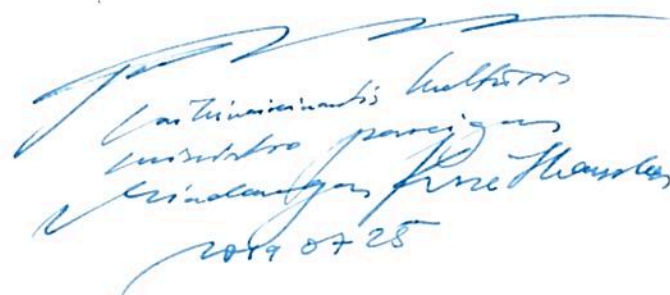 Laikinai einantis kultūros
ministro pareigas
Mindaugas
2019 07 25